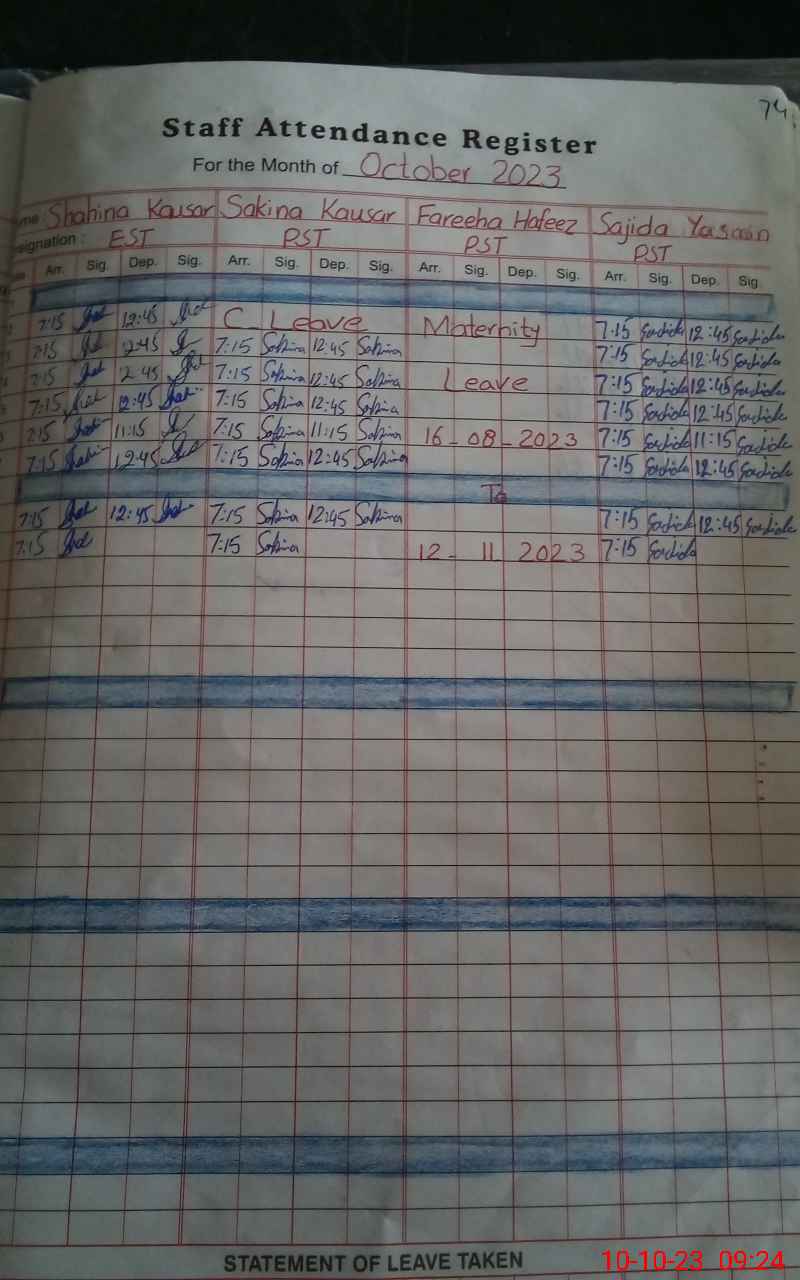 74
Staff Attendance Register
For the Month of October 2023
me Shahina Kausar Sakina Kausar Fareeha Hafeez Sajida Yasmin
signation : EST PST PST PST
Arr. Sig. Dep. Sig. Arr. Sig. Dep. Sig. Arr. Sig. Dep. Sig. Arr. Sig. Dep. Sig.
7:15 12:45 C Leave Maternity 7:15 Sajida 12:45 Sajida
7:15 12:45 7:15 Sakina 12:45 Sakina 7:15 Sajida 12:45 Sajida
7:15 12:45 7:15 Sakina 12:45 Sakina Leave 7:15 Sajida 12:45 Sajida
7:15 12:45 7:15 Sakina 12:45 Sakina 7:15 Sajida 12:45 Sajida
7:15 11:15 7:15 Sakina 11:15 Sakina 16-08-2023 7:15 Sajida 11:15 Sajida
7:15 12:45 7:15 Sakina 12:45 Sakina 7:15 Sajida 12:45 Sajida
To
7:15 12:45 7:15 Sakina 12:45 Sakina 7:15 Sajida 12:45 Sajida
7:15 7:15 Sakina 12- 11 2023 7:15 Sajida
STATEMENT OF LEAVE TAKEN
10-10-23 09:24